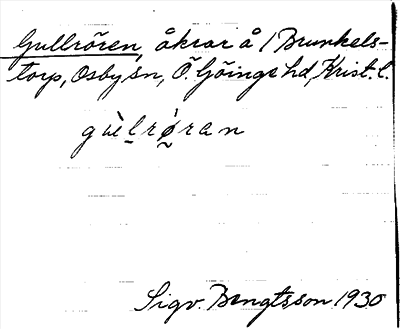 Gullrören, åkrar å 1 Brunkels-
torp, Osby sn, Ö. Göinge hd, Krist. l.
gùlrǿran
Sigv. Bengtsson 1930